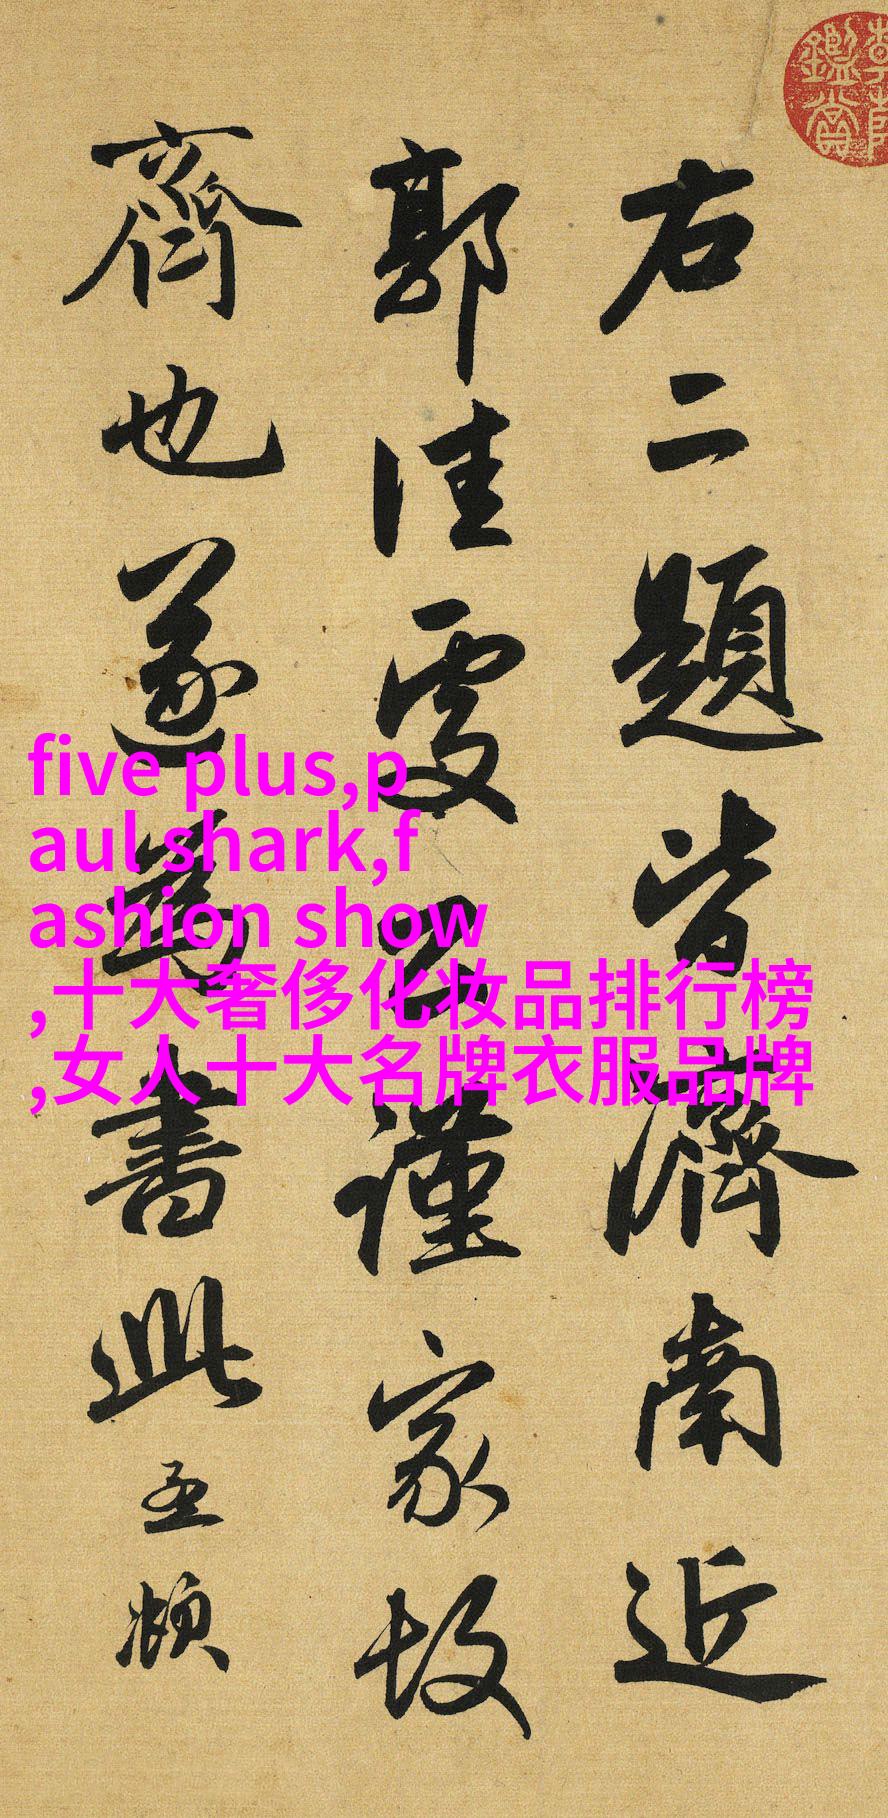 右二題皆濟南近
郭佳處公謹家故
齊也遂為書此孟頫
five plus,p
aul shark,f
ashion show
,十大奢侈化妆品排行榜
,女人十大名牌衣服品牌
鑑賞